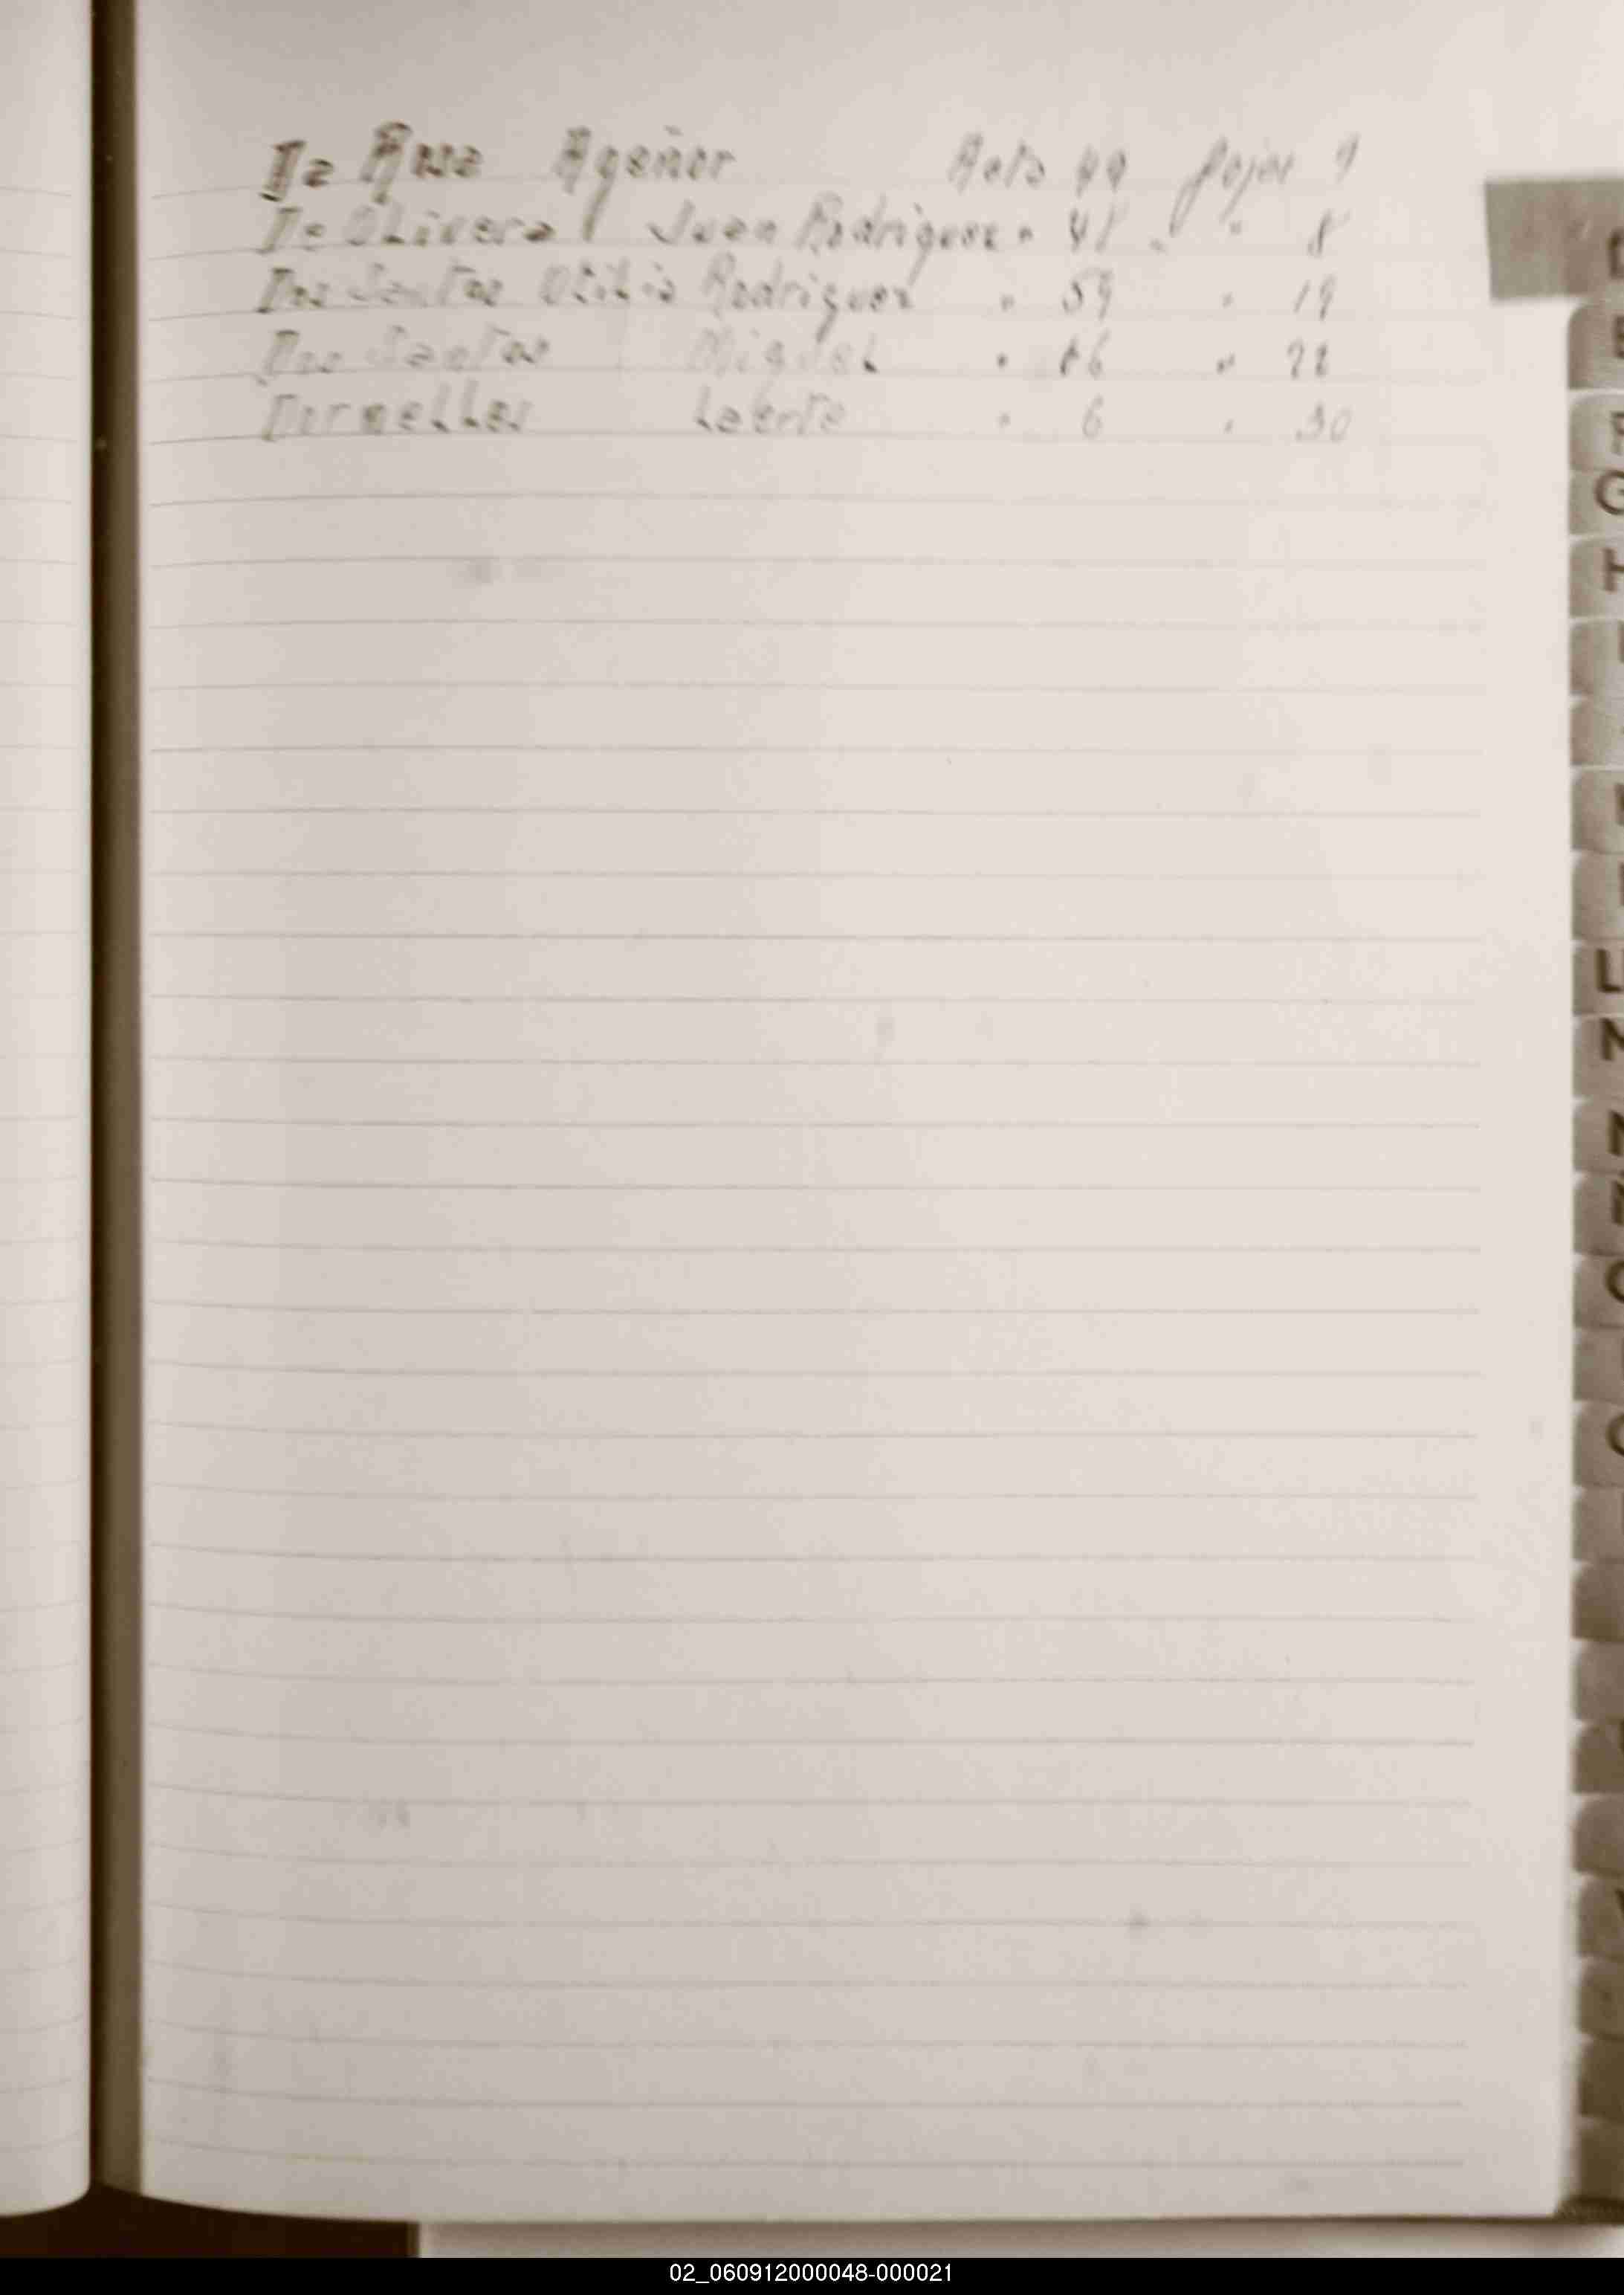 Da Rosa Ageñor Acta 49 fojas 9
De Olivera Juan Rodriguez " 48 " " 8
Dos Santos Otilia Rodriguez " 59 " 19
Dos Santos Miguel " 86 "
Dornelles Laerte " 6 " 30
G
H
N
02_060912000048-000021